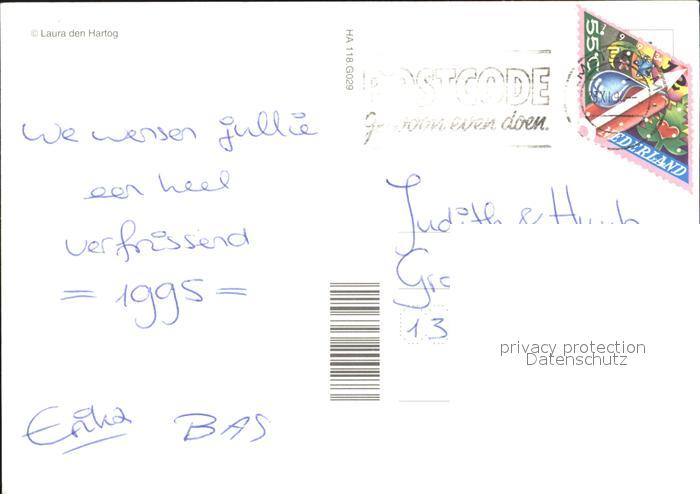 © Laura den Hartog
HA 118 G029
POSTCODE
gewoon even doen.
55c
NEDERLAND
We wensen jullie
een heel
verfrissend
= 1995 =
Erika BAS
Judith & Huub
Gro
13
privacy protection
Datenschutz